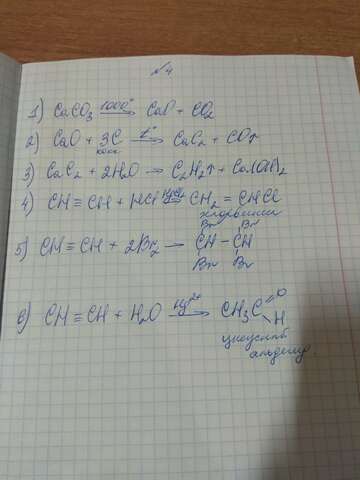 №4
1) CaCO₃ 1000° → CaO + CO₂
2) CaO + 3C t° → CaC₂ + CO↑
кокс
3) CaC₂ + 2H₂O → C₂H₂↑ + Ca(OH)₂
4) CH ≡ CH + HCl → CH₂ = CHCl
хлорвинил
5) CH ≡ CH + 2Br₂ → CH – CH
Br Br
Br Br
6) CH ≡ CH + H₂O Hg²⁺ → CH₃C=O
H
альдегид